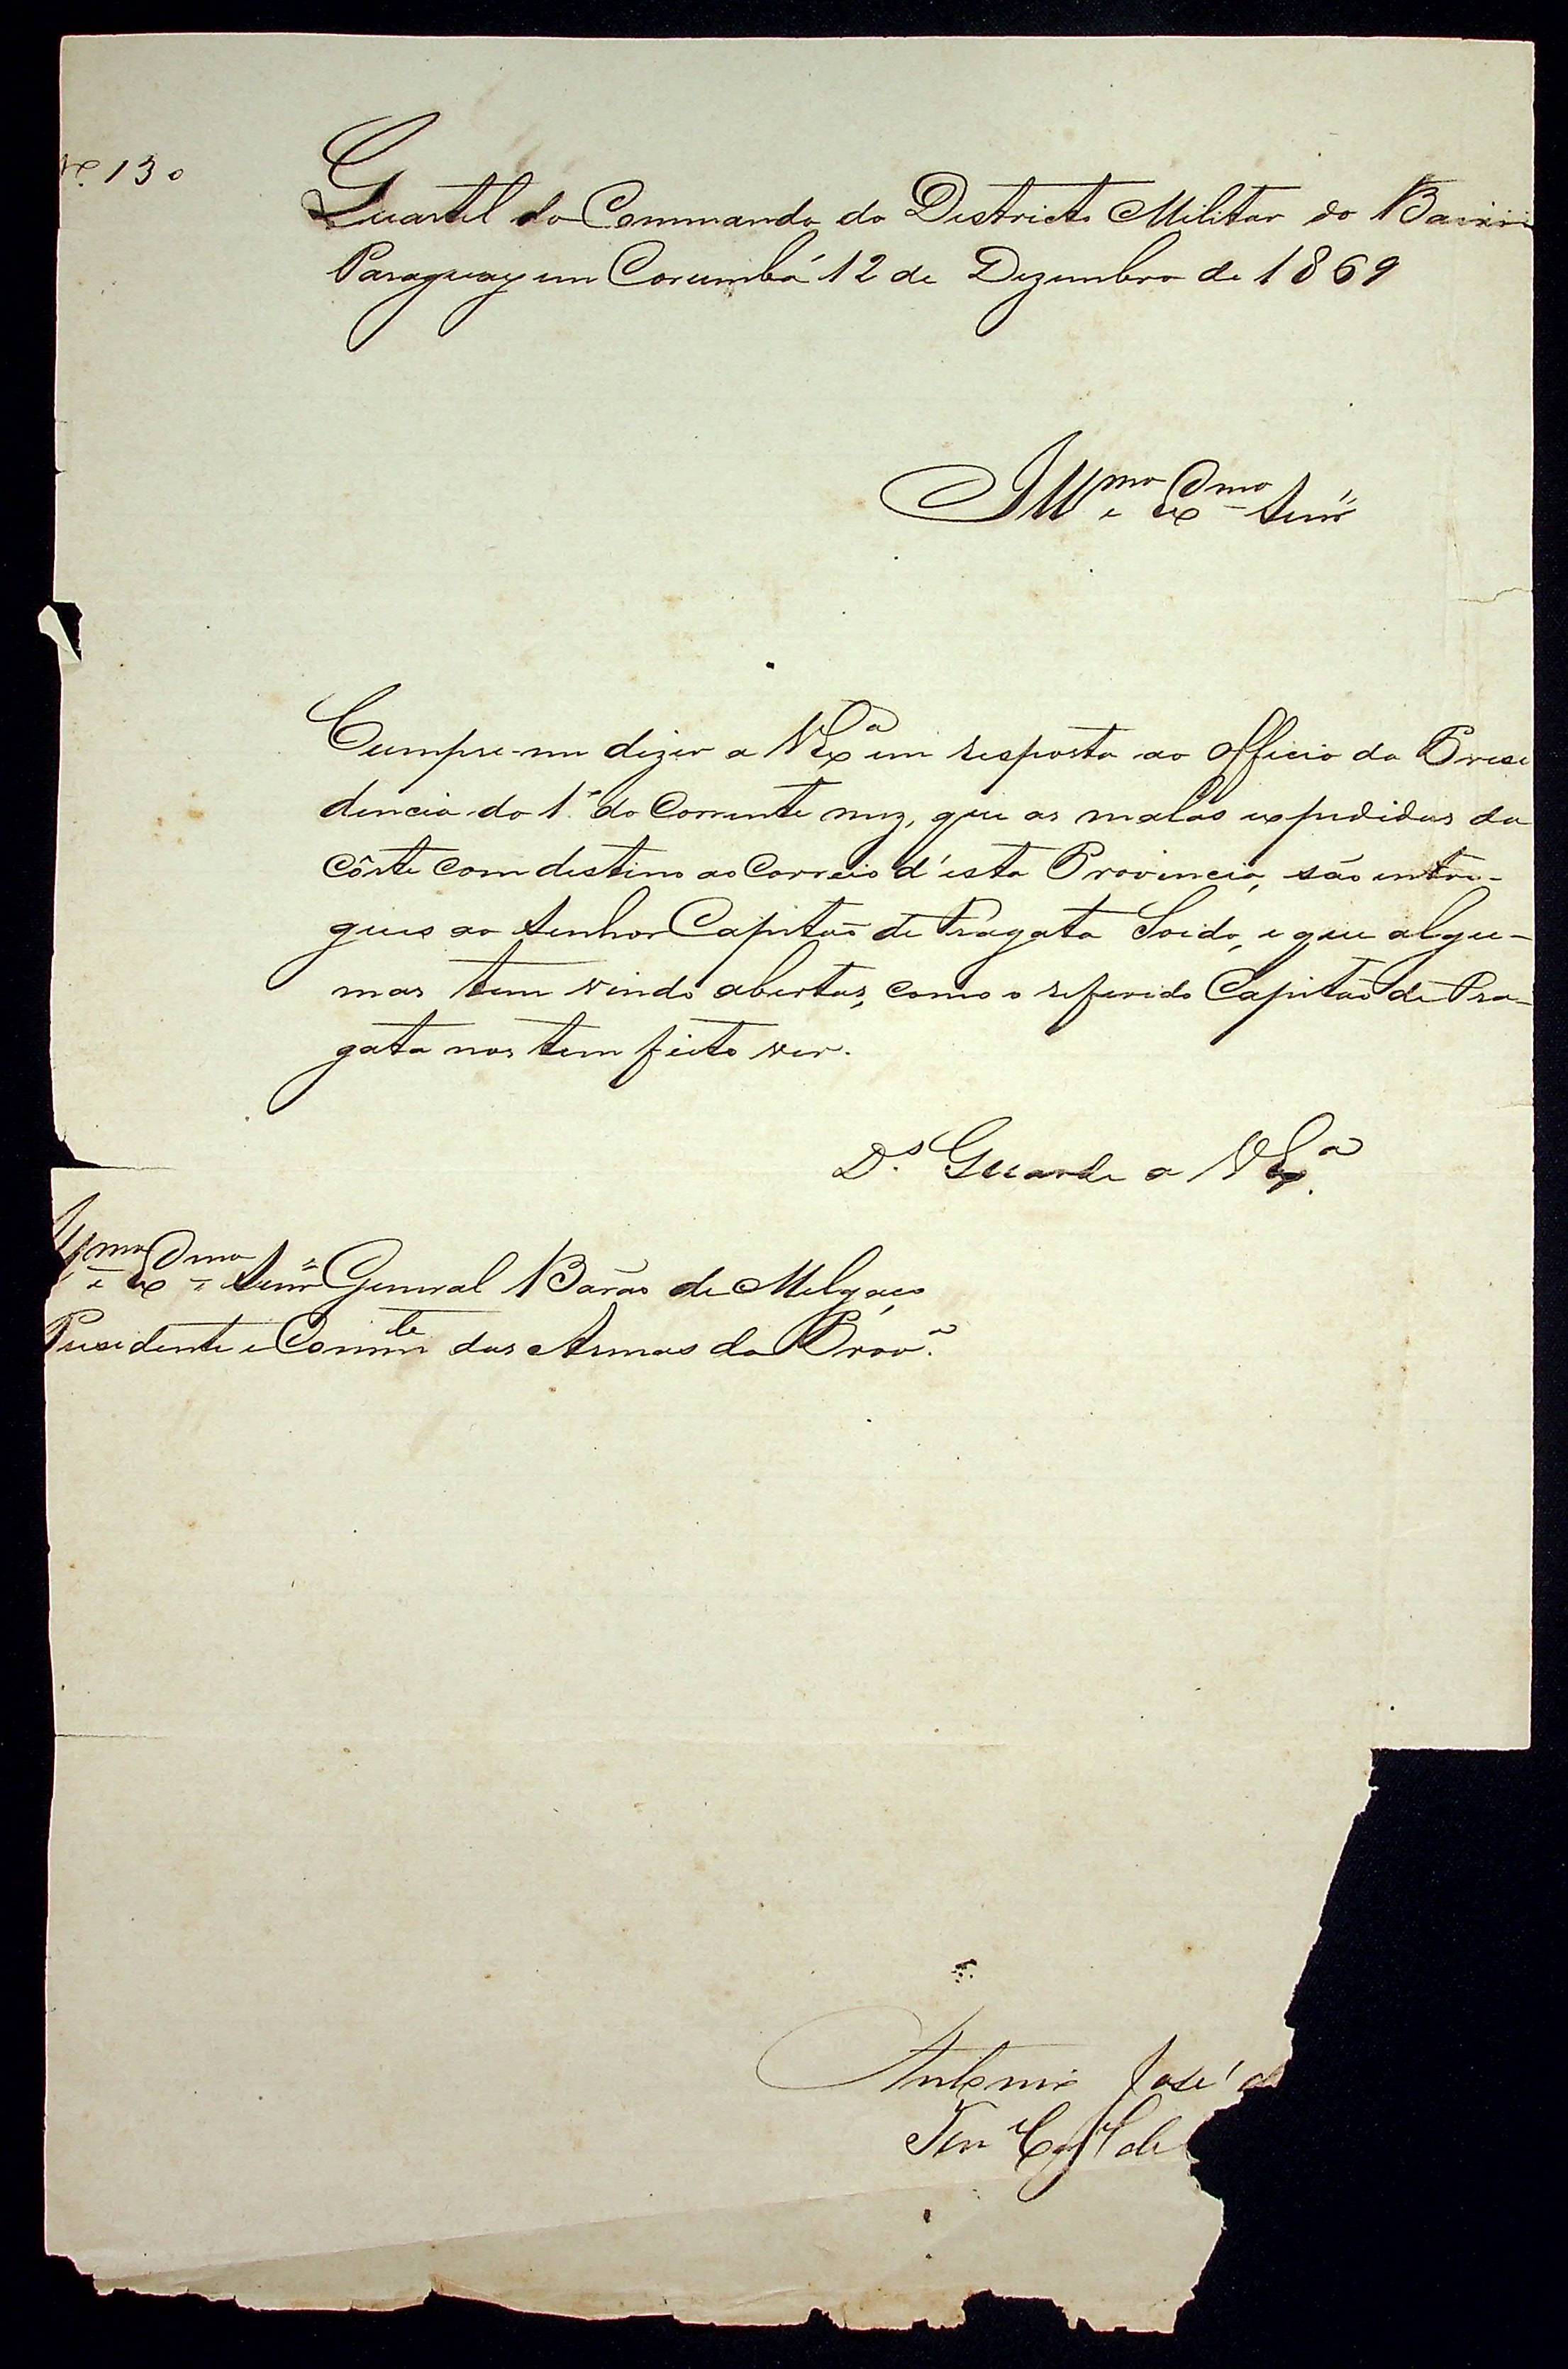 Nº 130
Quartel do Commando do Districto Militar do Baixo
Paraguay em Corumbá 12 de Dezembro de 1869
Illmo e Exmo Senr
Cumpre-me dizer a V Exa em resposta ao officio da Presi
dencia do 1º do Corrente mez, que as malas expedidas da
Côrte com destino ao Correio d'esta Provincia, são entre-
gues ao Senhor Capitão de Fragata Soido, e que algu-
mas tem vindo abertas, como o referido Capitão de Fra-
gata nos tem feito ver.
Ds Guarde a V Exa
Illmo e Exmo Senr General Barão de Melgaço
Presidente e Commte das Armas da Prova
Antonio José d
Ten Cel de